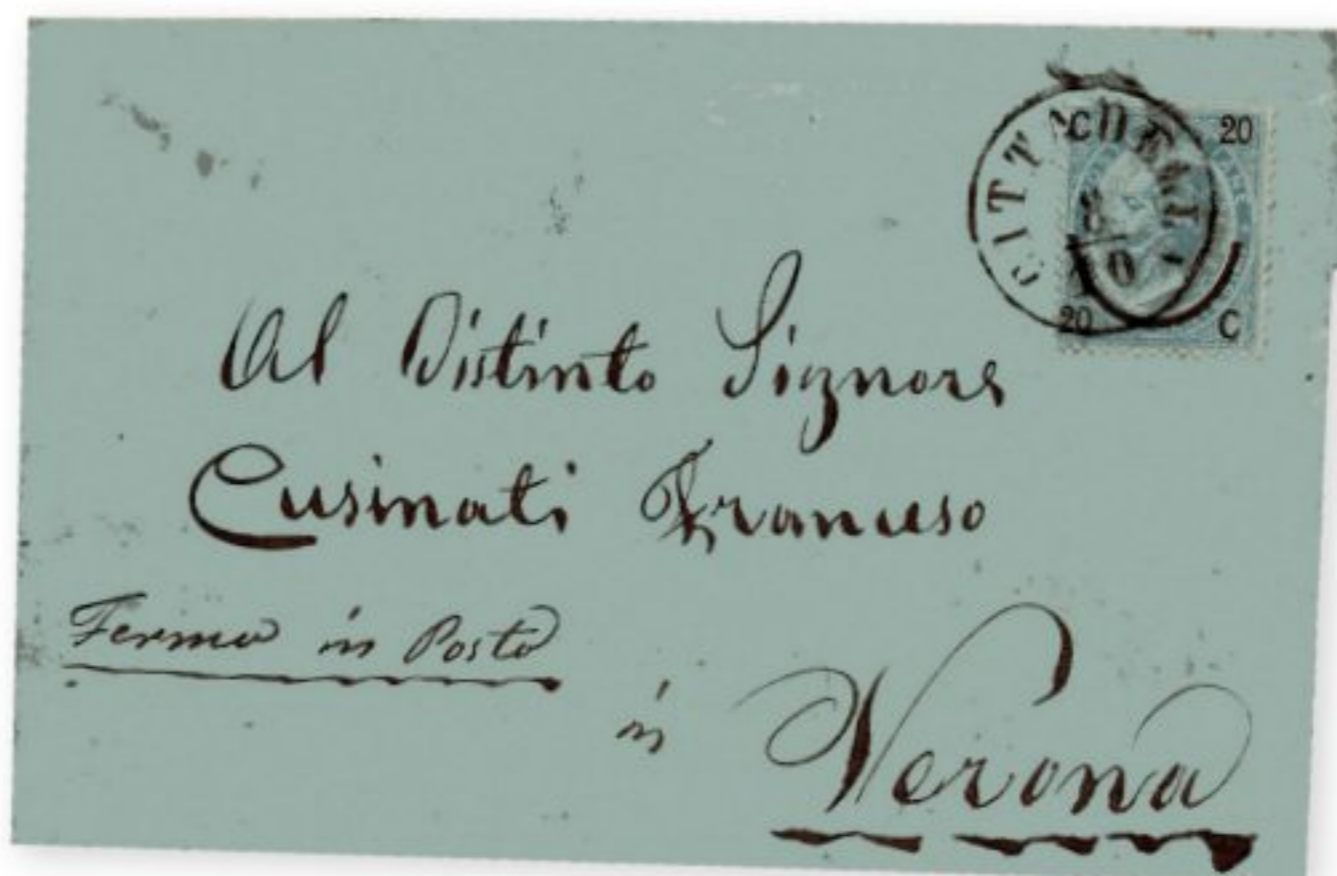 C 20
CITTADELLA
8
10
20 C
Al Distinto Signore
Cusinati Francesco
Fermo in Posta
in
Verona